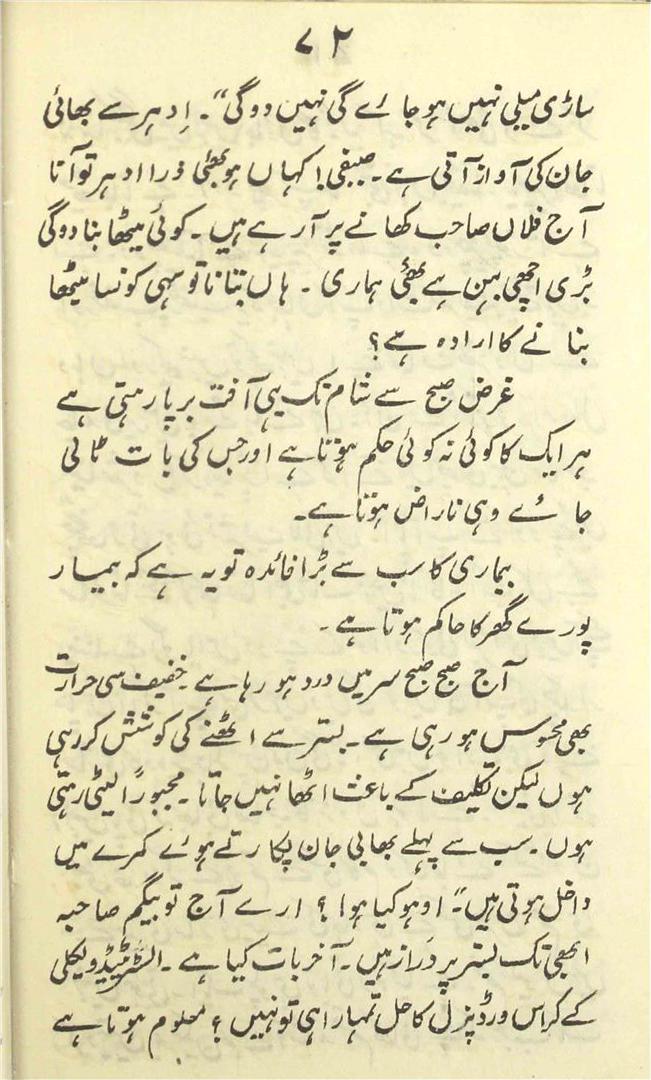 ۷۲
ساڑی میلی نہیں ہو جاۓ گی نہیں دوگی“۔ اِدہر سے بھائی
جان کی آواز آتی ہے۔ صبیفی! کہاں ہو بھئی ذرا ادہر تو آنا
آج فلاں صاحب کھانے پر آرہے ہیں۔ کوئی میٹھا بنا دوگی
بڑی اچھی بہن ہے بھئی ہماری ۔ ہاں بتانا تو سہی کونسا میٹھا
بنانے کا ارادہ ہے؟
غرض صبح سے شام تک یہی آفت برپا رہتی ہے
ہر ایک کا کوئی نہ کوئی حکم ہوتا ہے اور جس کی بات ٹالی
جاۓ وہی ناراض ہوتا ہے۔
بیماری کا سب سے بڑا فائدہ تو یہ ہے کہ بیمار
پورے گھر کا حاکم ہوتا ہے ۔
آج صبح صبح سر میں درد ہو رہا ہے ۔ خفیف سی حرارت
بھی محسوس ہو رہی ہے۔ بستر سے اٹھنے کی کوشش کر رہی
ہوں لیکن تکلیف کے باعث اٹھا نہیں جاتا ۔ مجبوراً لیٹی رہتی
ہوں ۔ سب سے پہلے بھابی جان پکارتے ہوۓ کمرے میں
داخل ہوتی ہیں۔ ”اوہو کیا ہوا ؟ ارے آج تو بیگم صاحبہ
ابھی تک بستر پر دَراز ہیں۔ آخر بات کیا ہے ۔ السٹریٹیڈ ویکلی
کے کراس ورڈ پزل کا حل تمہارا ہی تو نہیں ؟ معلوم ہوتا ہے